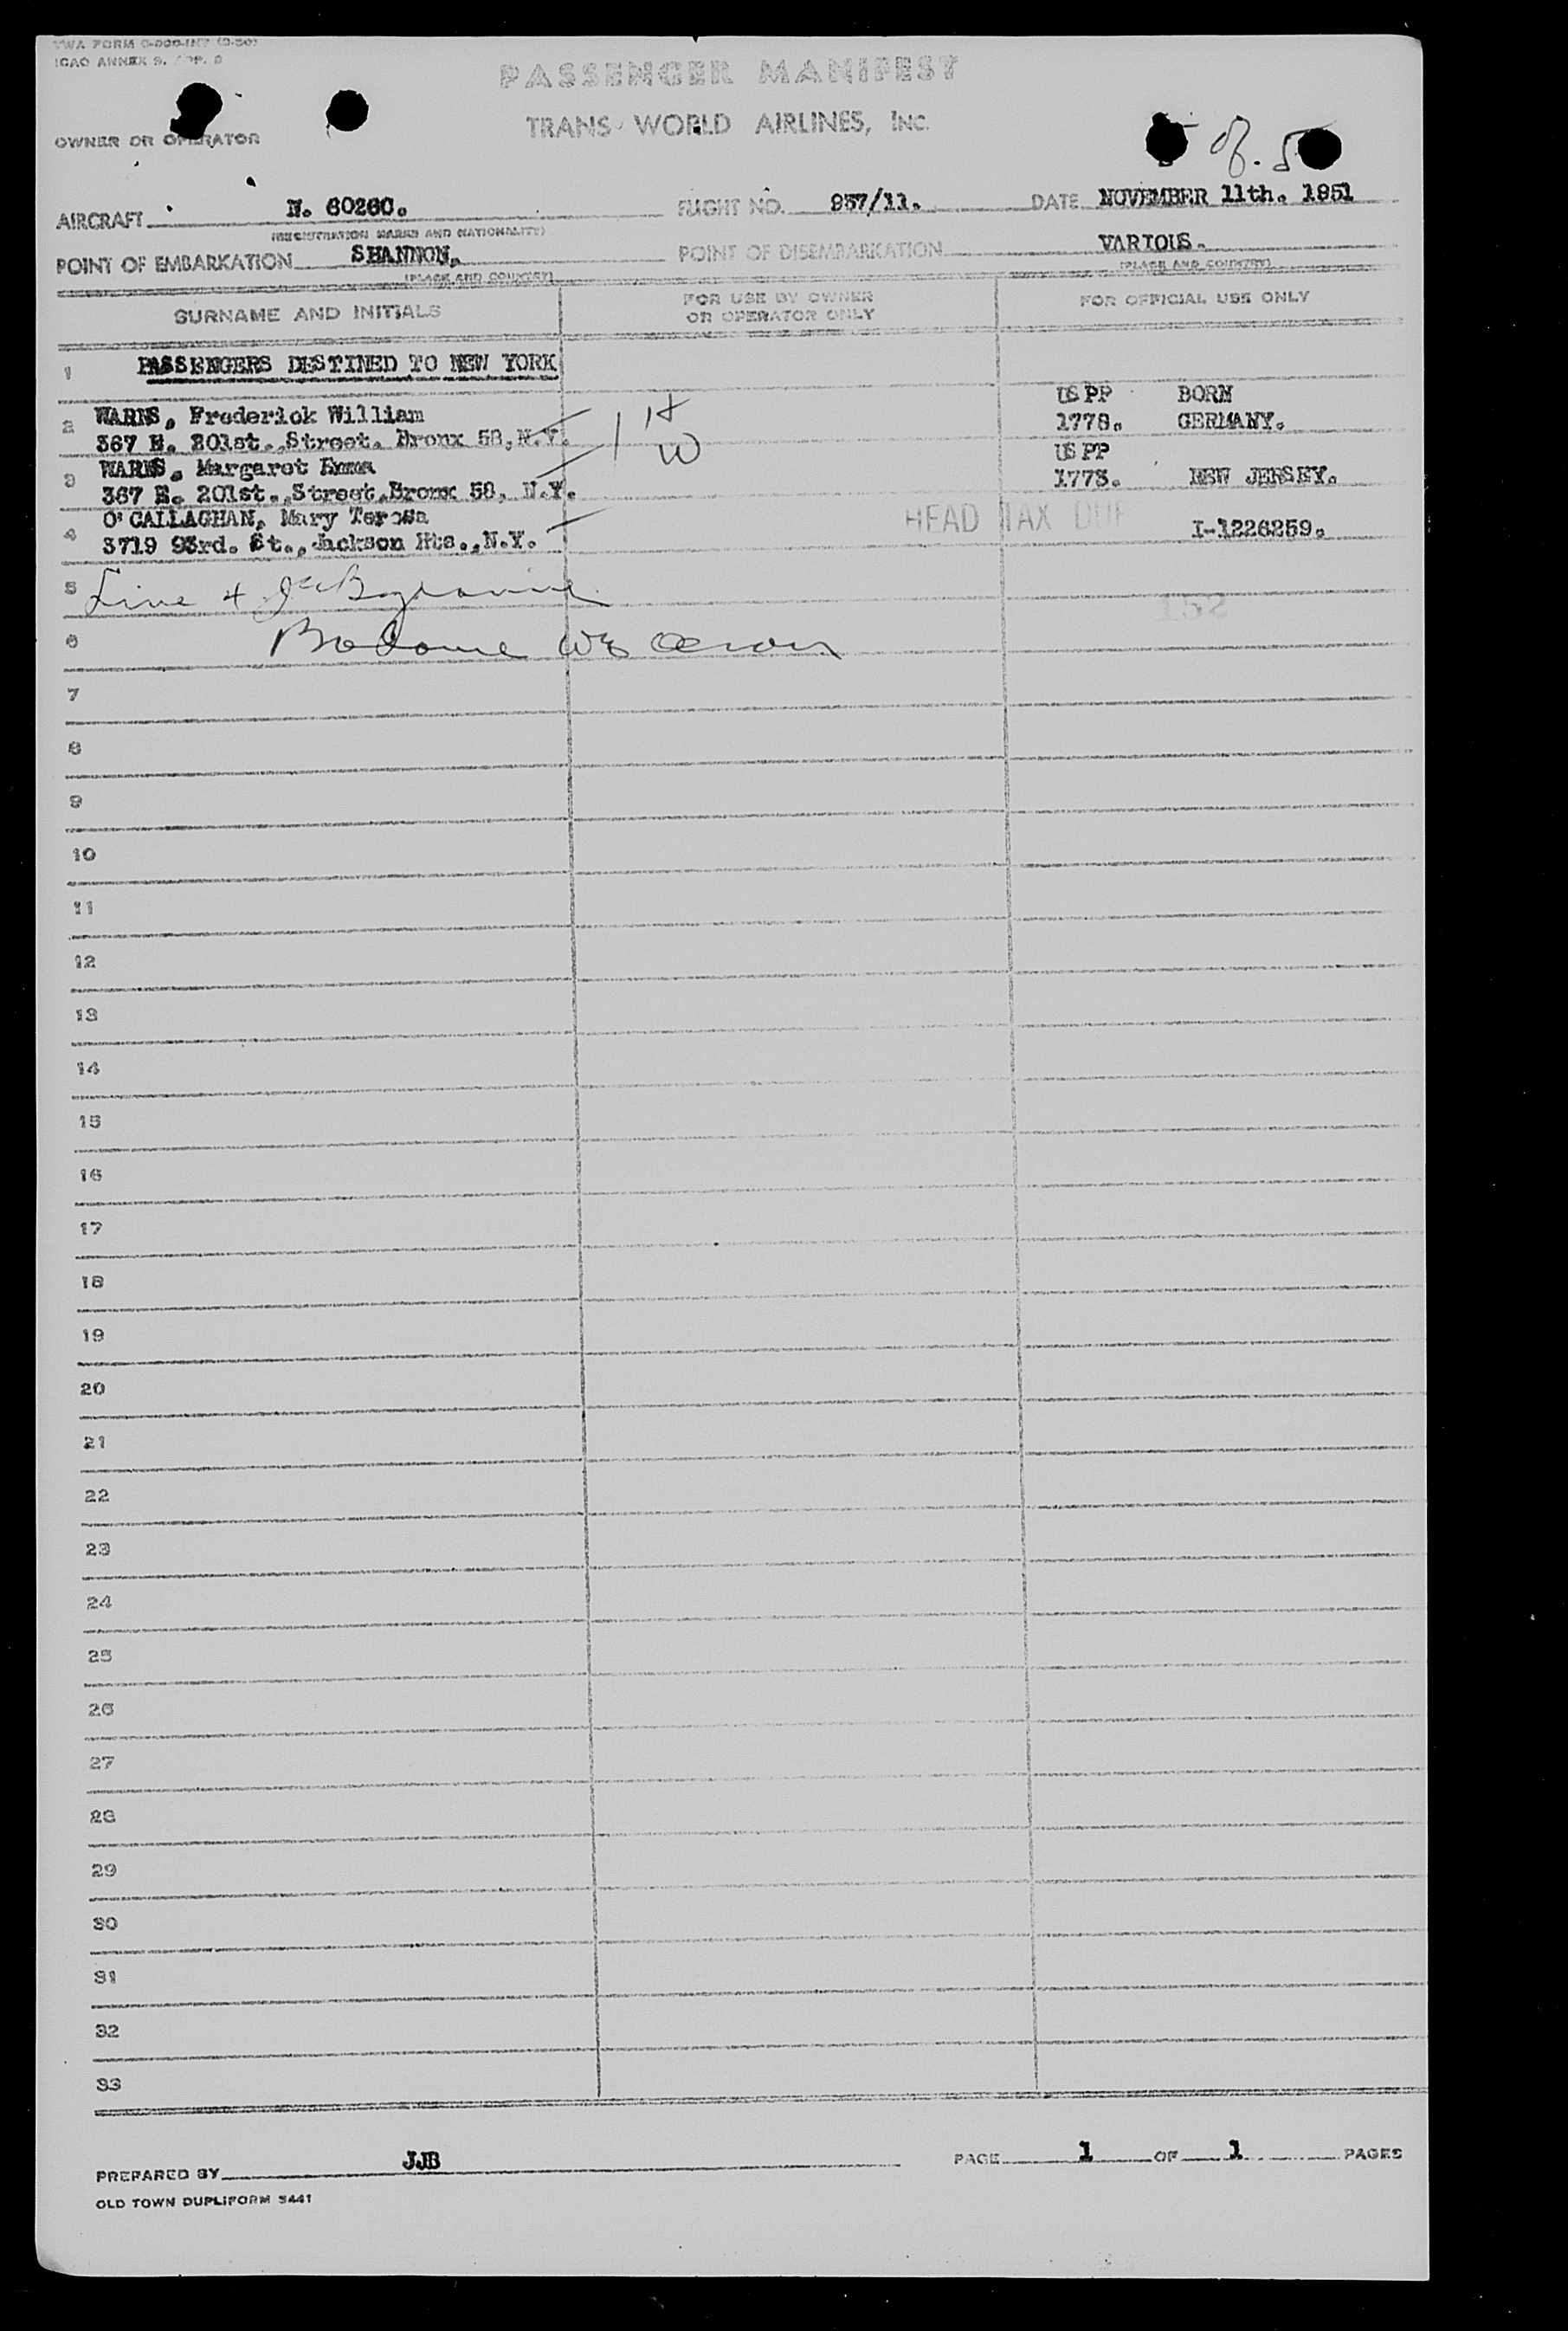 ICAO ANNEX 9.
PASSENGER MANIFEST
TRANS WORLD AIRLINES, INC.
OWNER OR OPERATOR
of 5
AIRCRAFT N. 6026C. FLIGHT NO. 957/11. DATE NOVEMBER 11th. 1951
(REGISTRATION MARKS AND NATIONALITY)
POINT OF EMBARKATION SHANNON. POINT OF DISEMBARKATION VARIOUS.
(PLACE AND COUNTRY) (PLACE AND COUNTRY)
SURNAME AND INITIALS FOR USE BY OWNER OR OPERATOR ONLY FOR OFFICIAL USE ONLY
1 PASSENGERS DESTINED TO NEW YORK
US PP BORN
2 WARNS, Frederick William 1778. GERMANY.
367 E. 201st. Street. Bronx 58, N.Y.
US PP
3 WARNS, Margaret Emma 1773. NEW JERSEY.
367 E. 201st., Street, Bronx 58, N.Y.
4 O'CALLAGHAN, Mary Teresa HEAD TAX DUE I-1226259.
3719 93rd. St., Jackson Hts., N.Y.
5
152
6
7
8
9
10
11
12
13
14
15
16
17
18
19
20
21
22
23
24
25
26
27
28
29
30
31
32
33
PREPARED BY JJB PAGE 1 OF 1 PAGES
OLD TOWN DUPLIFORM 5441